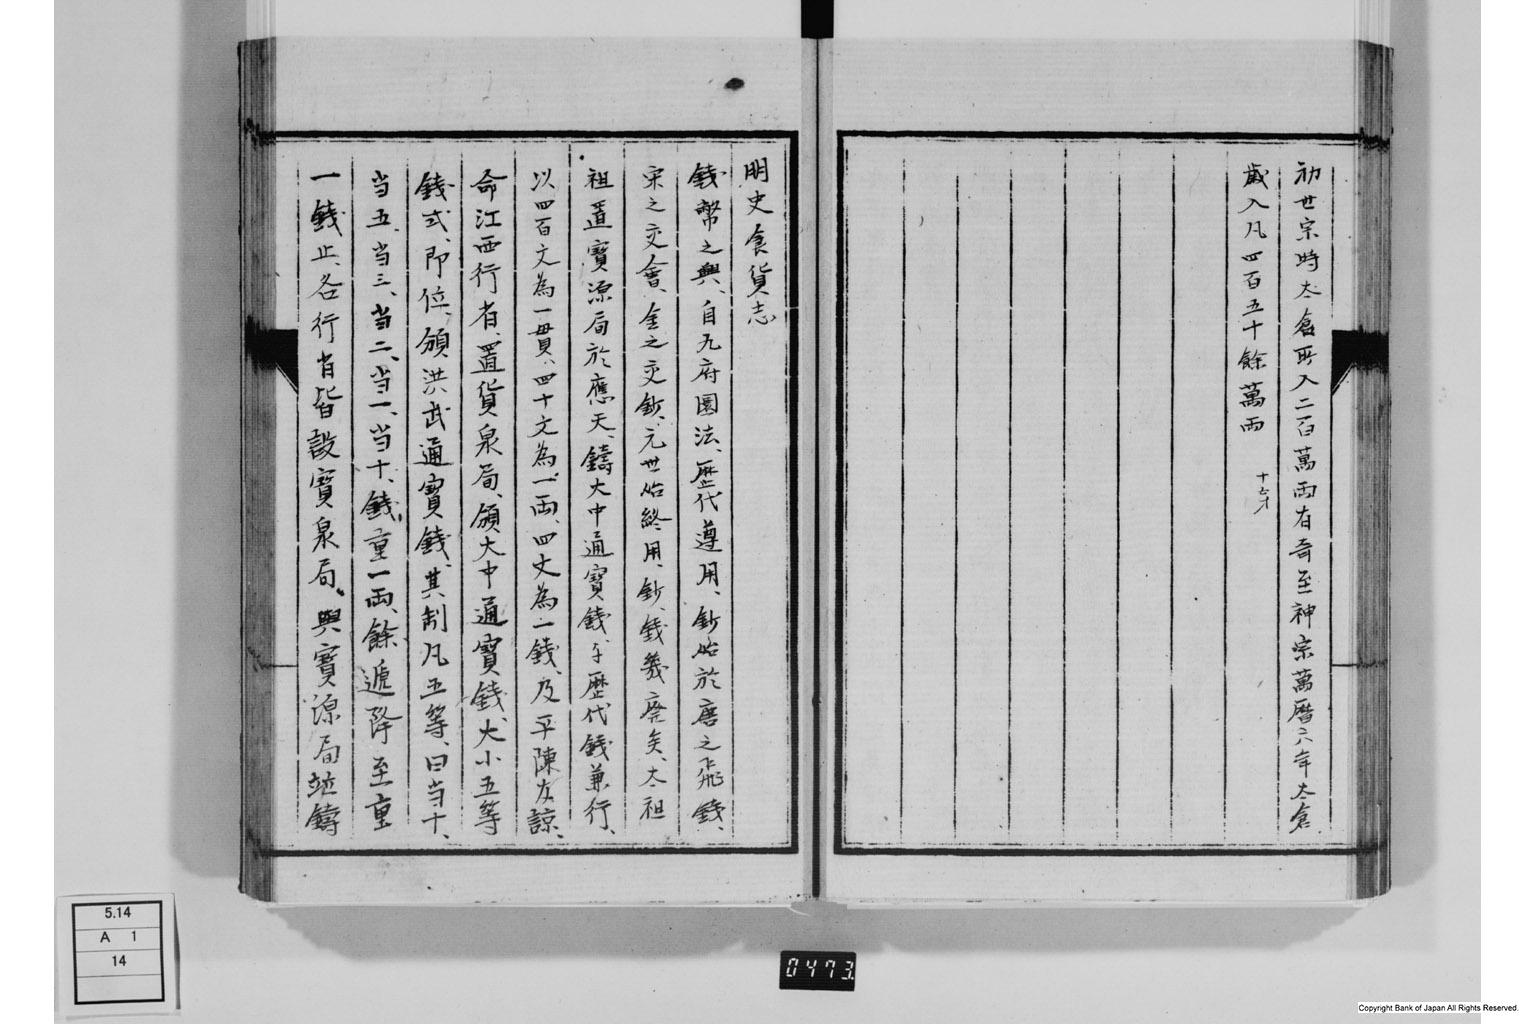 初世宗時太倉所入二百萬兩有奇至神宗萬曆六年太倉
歲入凡四百五十餘萬兩
明史食貨志
錢幣之興、自九府圜法、歷代遵用、鈔始於唐之飛錢、
宋之交會、金之交鈔、元世始終用、鈔、錢幾廢矣、太祖
祖置寶源局於應天、鑄大中通寶錢、与歷代錢兼行、
以四百文為一貫、四十文為一兩、四文為一錢、及平陳友諒、
命江西行省、置貨泉局、頒大中通寶錢、大小五等
錢式、即位、頒洪武通寶錢、其制凡五等、曰当十、
当五、当三、当二、当一、当十、錢重一兩、餘遞降至重
一錢止、各行省皆設寶泉局、與寶源局竝鑄
5.14
A 1
14
0473
Copyright Bank of Japan All Rights Reserved.